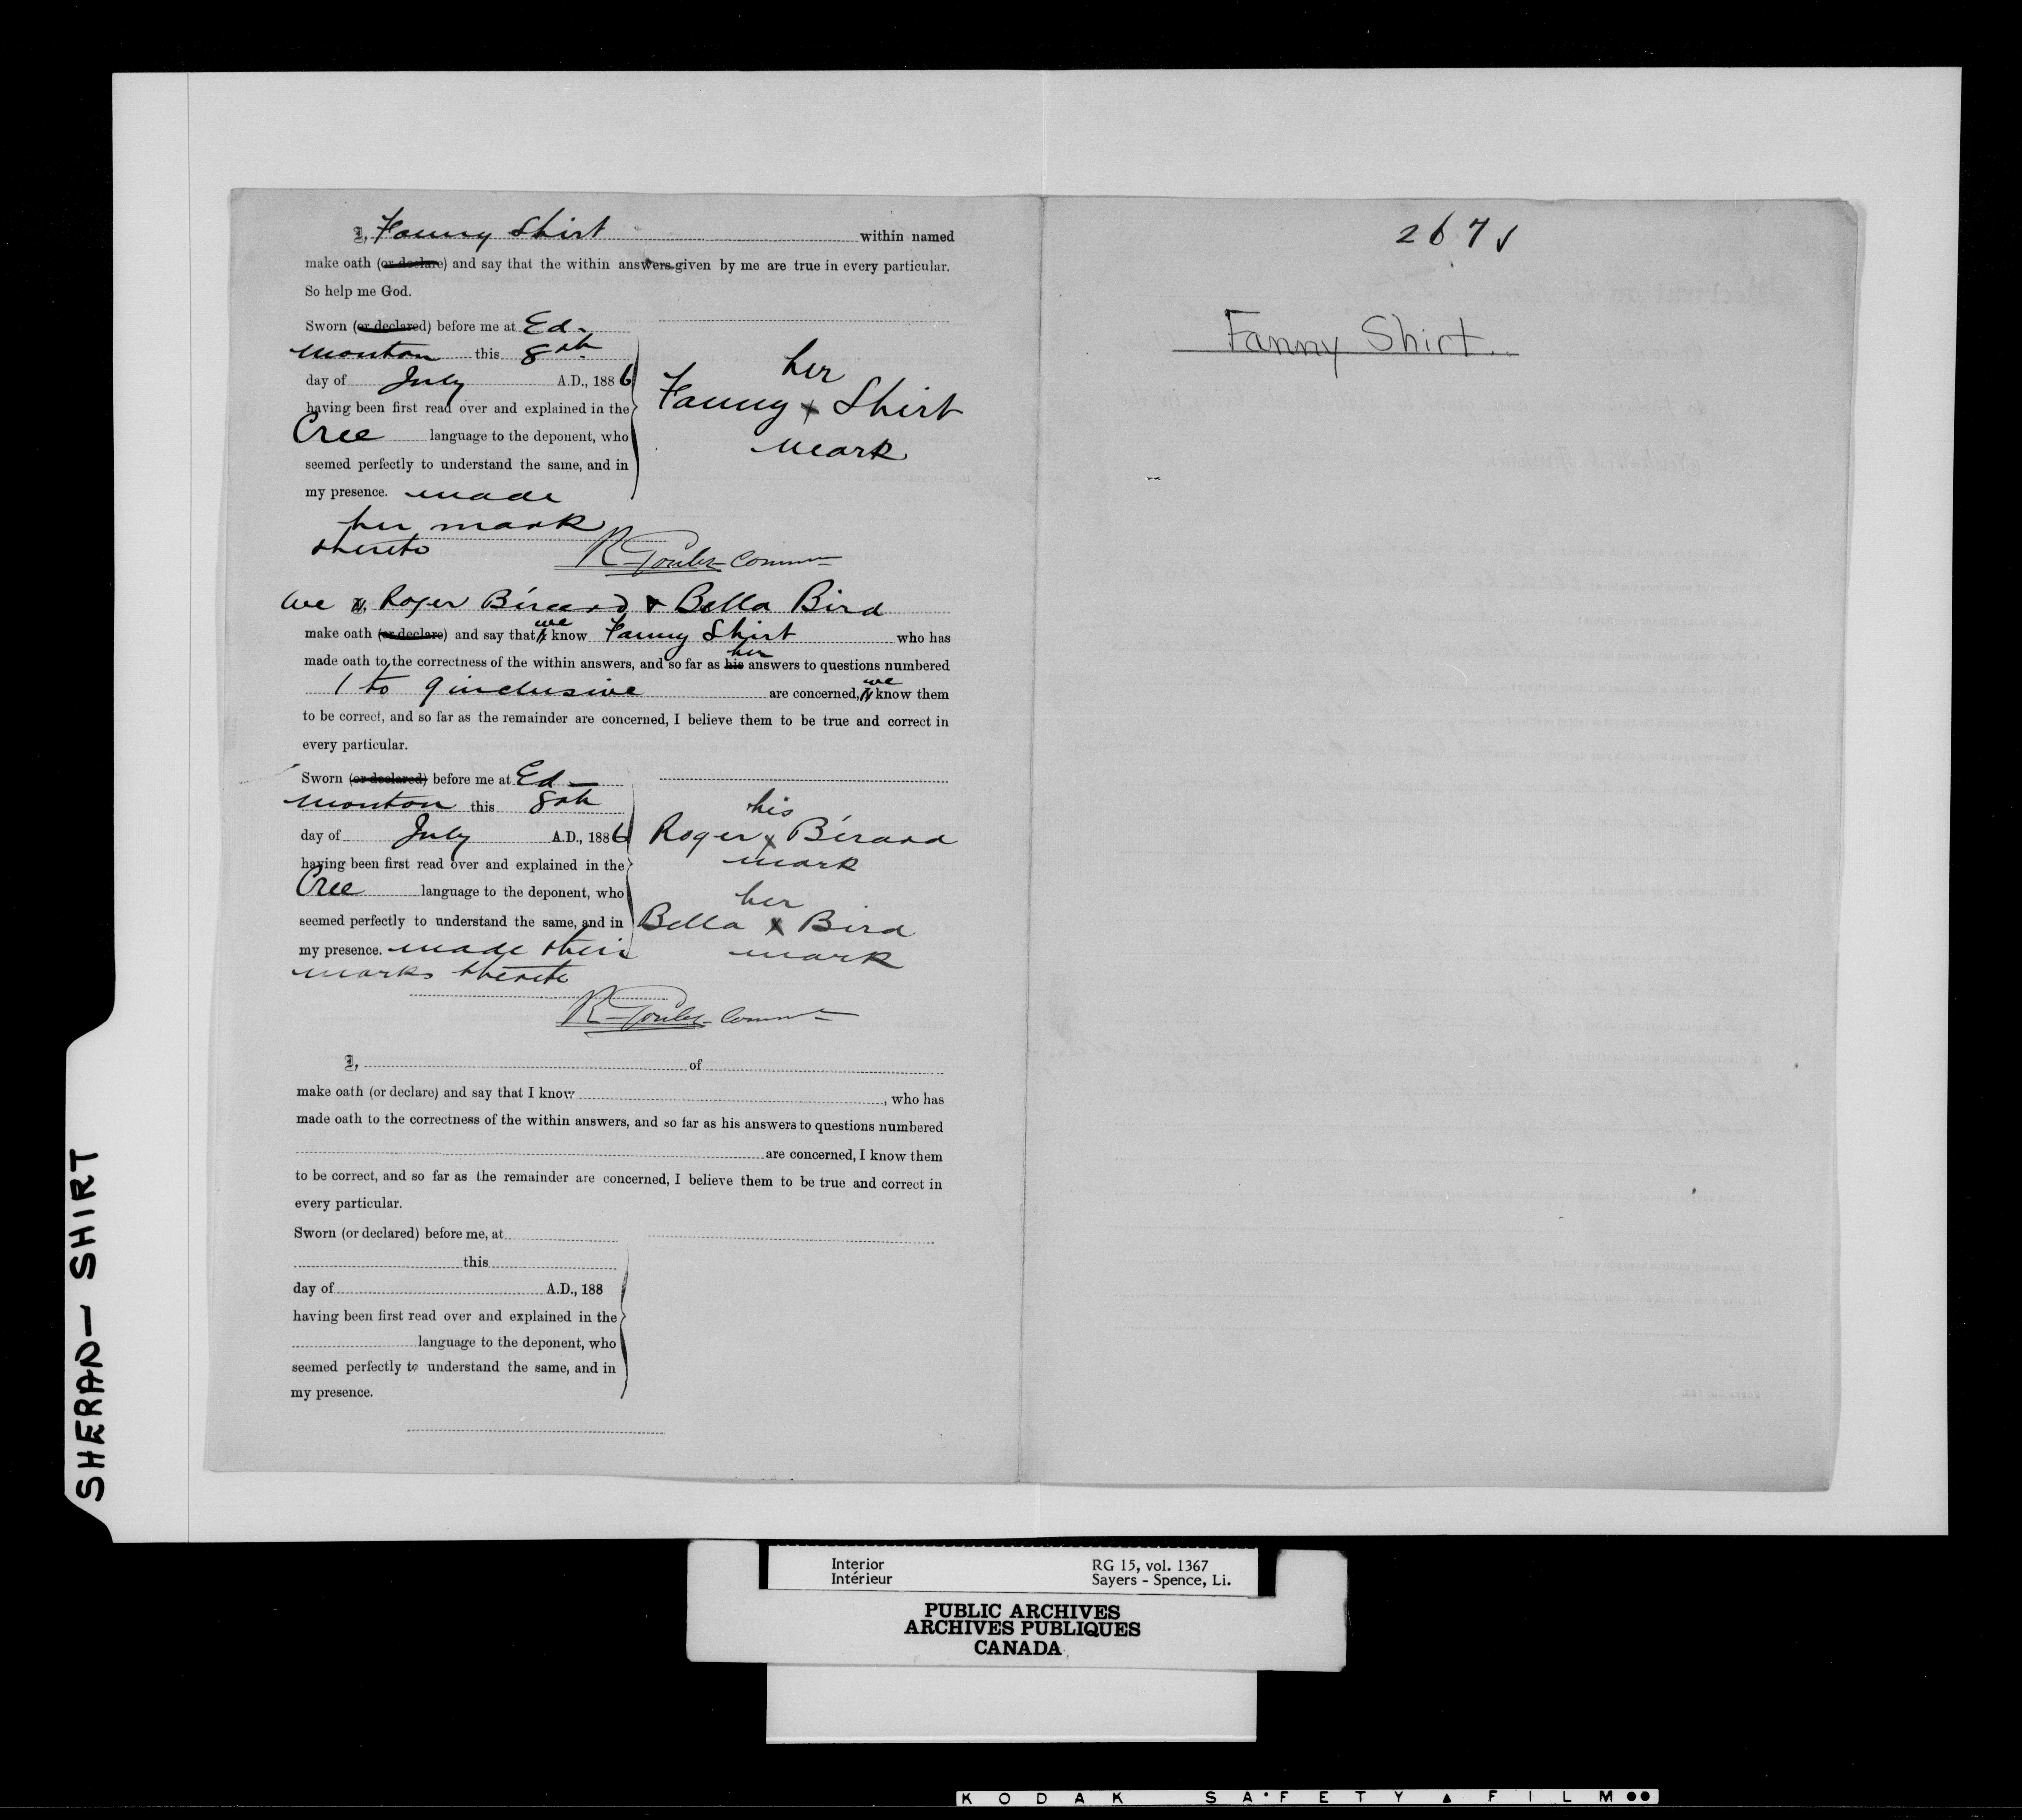 I, Fanny Shirt within named
make oath (or declare) and say that the within answers given by me are true in every particular.
So help me God.
Sworn (or declared) before me at Ed-
monton this 8th
day of July A.D., 1886
having been first read over and explained in the
Cree language to the deponent, who
seemed perfectly to understand the same, and in
my presence. made
her mark
thereto
her
Fanny x Shirt
mark
R Goulet Commr
We I, Roger Bérard & Bella Bird
make oath (or declare) and say that I we know Fanny Shirt who has
made oath to the correctness of the within answers, and so far as his her answers to questions numbered
1 to 9 inclusive are concerned, I we know them
to be correct, and so far as the remainder are concerned, I believe them to be true and correct in
every particular.
Sworn (or declared) before me at Ed-
monton this 8th
day of July A.D., 1886
having been first read over and explained in the
Cree language to the deponent, who
seemed perfectly to understand the same, and in
my presence. made their
marks thereto
his
Roger x Bérard
mark
her
Bella x Bird
mark
R Goulet Commr
I, of
make oath (or declare) and say that I know , who has
made oath to the correctness of the within answers, and so far as his answers to questions numbered
are concerned, I know them
to be correct, and so far as the remainder are concerned, I believe them to be true and correct in
every particular.
Sworn (or declared) before me, at
this
day of A.D., 188
having been first read over and explained in the
language to the deponent, who
seemed perfectly to understand the same, and in
my presence.
267
Fanny Shirt.
SHERAD— SHIRT
Interior
Intérieur
RG 15, vol. 1367
Sayers - Spence, Li.
PUBLIC ARCHIVES
ARCHIVES PUBLIQUES
CANADA
KODAK SAFETY FILM